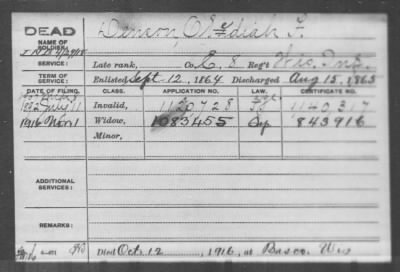 DEAD
NAME OF SOLDIER:
Denson, Obediah F.
SERVICE:
Late rank, Co. E, 8 Reg't Wis. Inf.
TERM OF SERVICE:
Enlisted Sept. 12, 1864 Discharged Aug 15, 1865
DATE OF FILING. CLASS. APPLICATION NO. LAW. CERTIFICATE NO.
1892 July 11 Invalid, 1120728 1140317
1916 Nov 1 Widow, 1083455 843916
Minor,
ADDITIONAL SERVICES:
REMARKS:
Died Oct. 12, 1916, at Basco, Wis